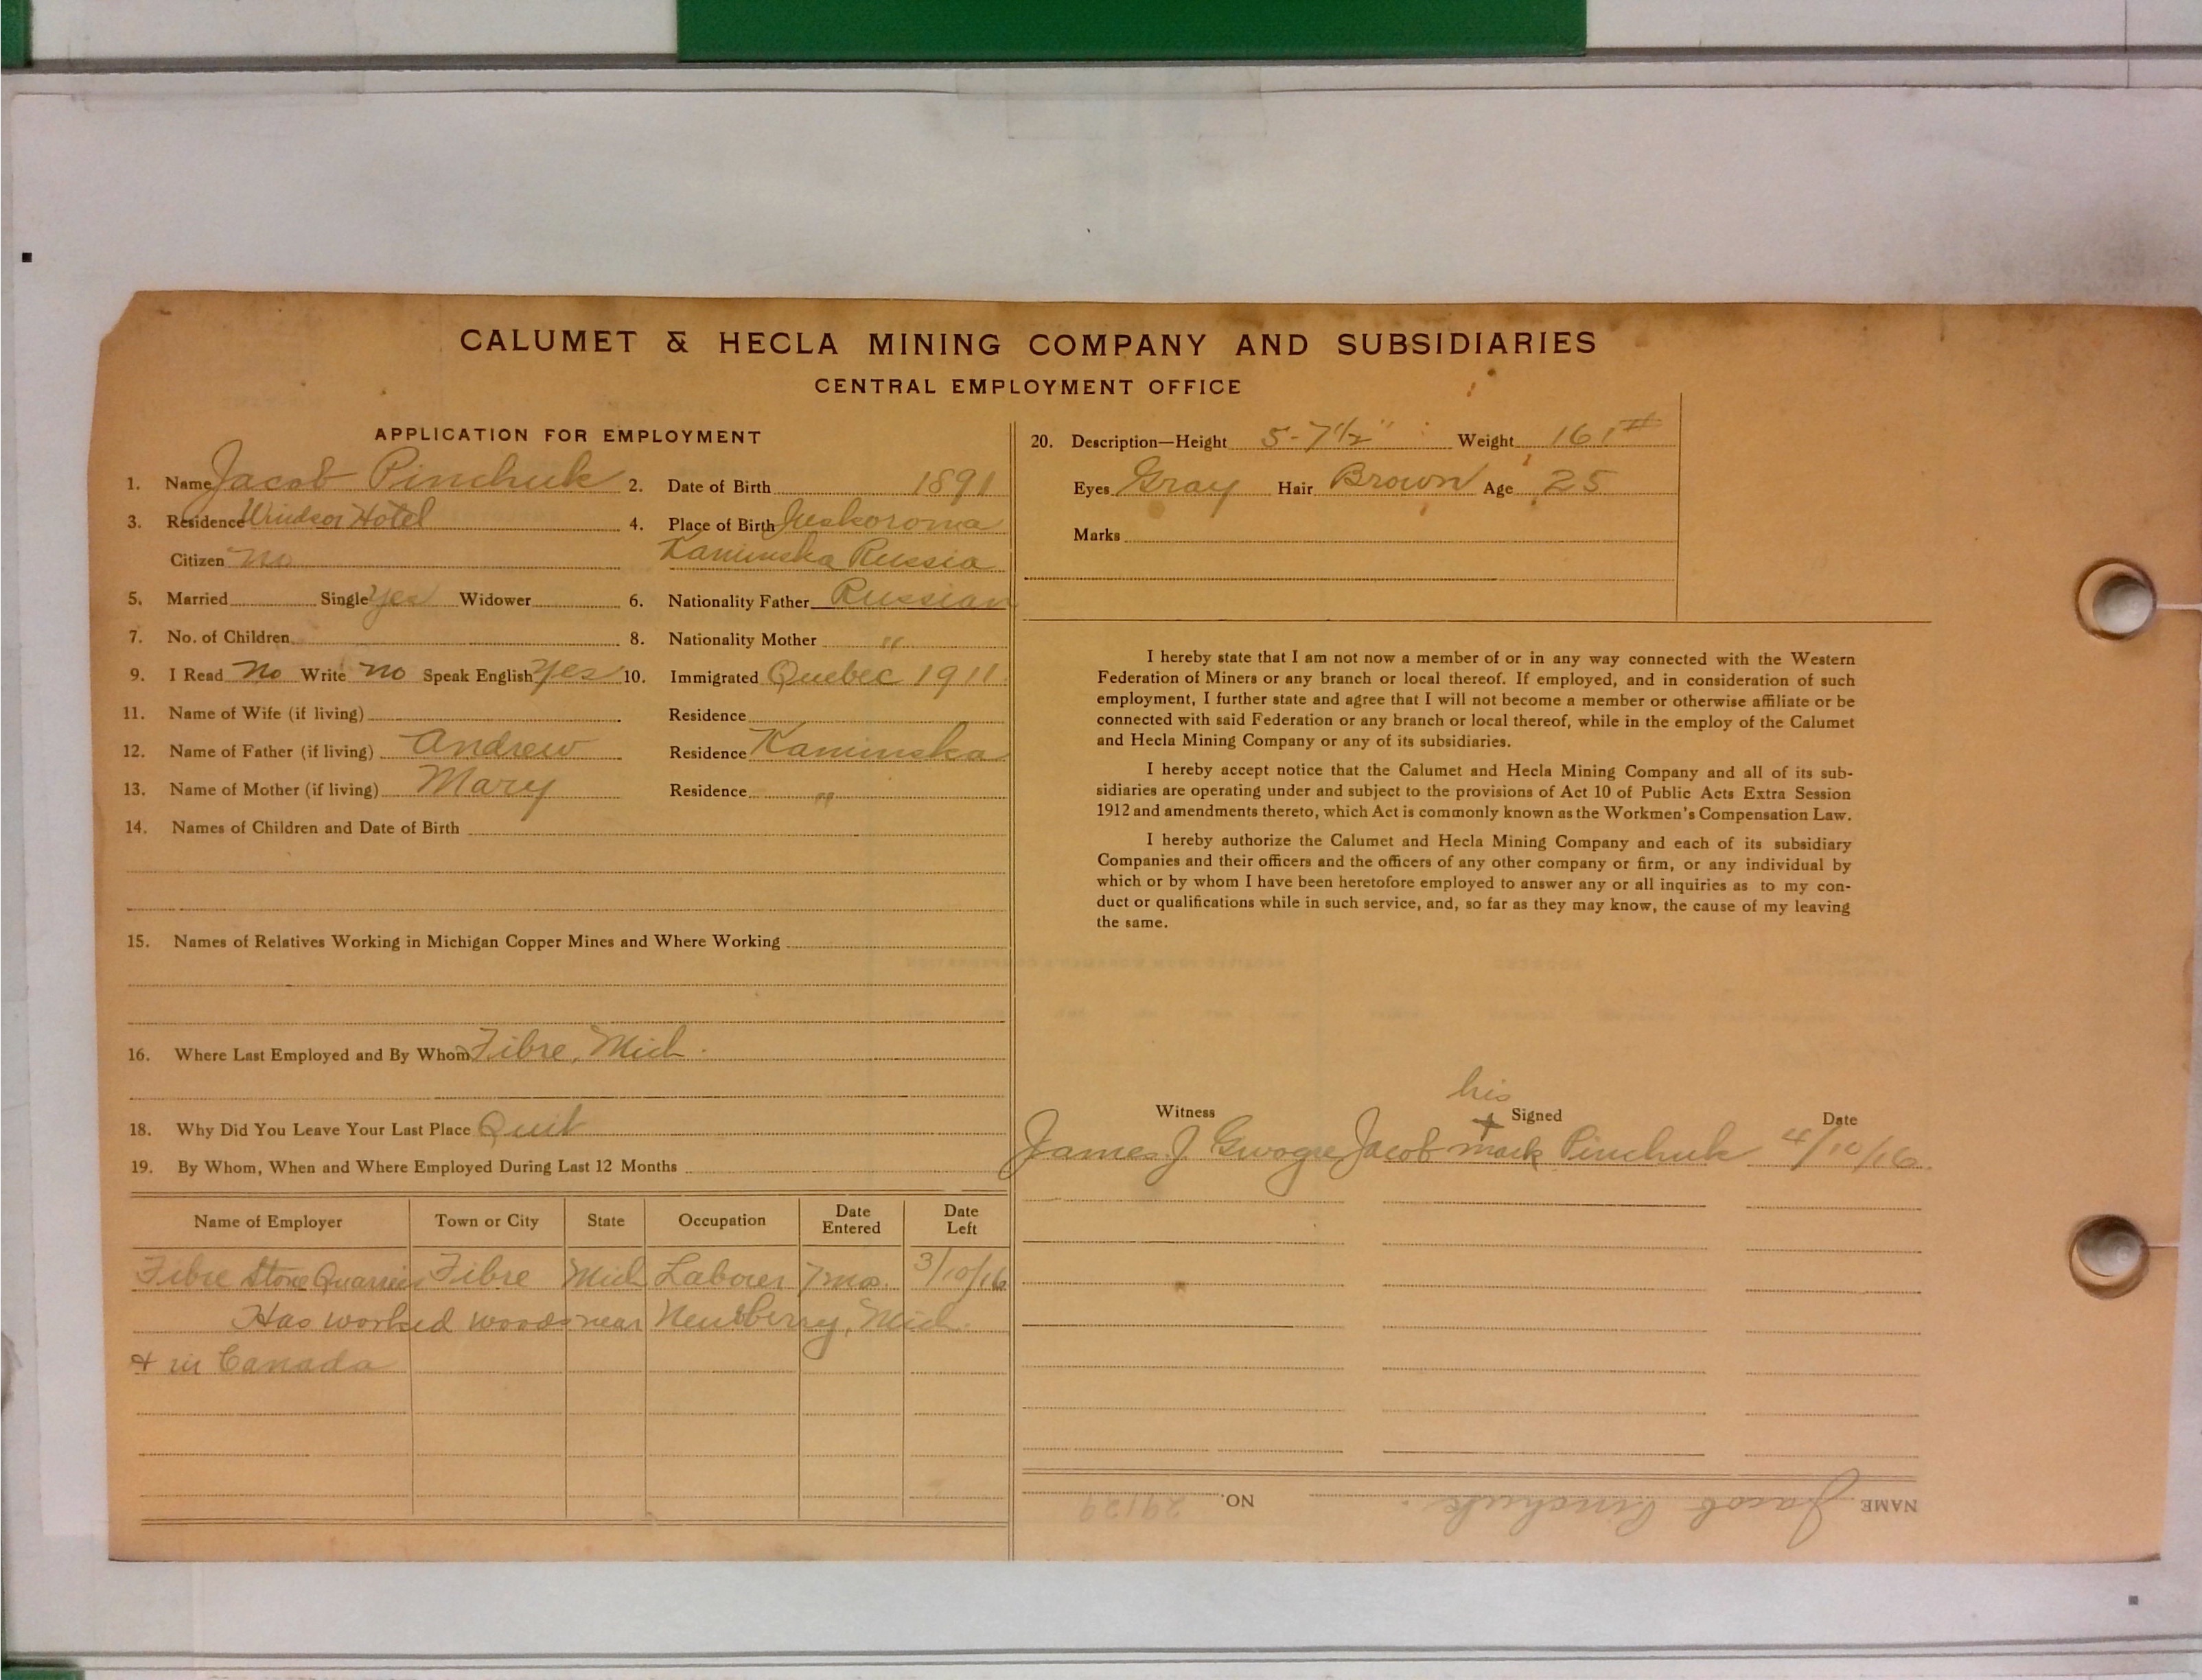 CALUMET & HECLA MINING COMPANY AND SUBSIDIARIES
CENTRAL EMPLOYMENT OFFICE
APPLICATION FOR EMPLOYMENT
1. Name Jacob Pinchuk 2. Date of Birth 1891
3. Residence Windsor Hotel 4. Place of Birth
Citizen No Kaminska Russia
5. Married Single yes Widower 6. Nationality Father Russian
7. No. of Children 8. Nationality Mother "
9. I Read No Write no Speak English yes 10. Immigrated Quebec 1911
11. Name of Wife (if living) Residence
12. Name of Father (if living) Andrew Residence Kaminska
13. Name of Mother (if living) Mary Residence "
14. Names of Children and Date of Birth
15. Names of Relatives Working in Michigan Copper Mines and Where Working
16. Where Last Employed and By Whom Fibre, Mich.
18. Why Did You Leave Your Last Place Quit
19. By Whom, When and Where Employed During Last 12 Months
Name of Employer Town or City State Occupation Date Entered Date Left
Fibre Stone Quarries Fibre Mich Laborer 7 mos. 3/10/16
Has worked woods near Newberry, Mich.
& in Canada
20. Description—Height 5-7 1/2" Weight 161 #
Eyes Gray Hair Brown Age 25
Marks
I hereby state that I am not now a member of or in any way connected with the Western
Federation of Miners or any branch or local thereof. If employed, and in consideration of such
employment, I further state and agree that I will not become a member or otherwise affiliate or be
connected with said Federation or any branch or local thereof, while in the employ of the Calumet
and Hecla Mining Company or any of its subsidiaries.
I hereby accept notice that the Calumet and Hecla Mining Company and all of its sub-
sidiaries are operating under and subject to the provisions of Act 10 of Public Acts Extra Session
1912 and amendments thereto, which Act is commonly known as the Workmen's Compensation Law.
I hereby authorize the Calumet and Hecla Mining Company and each of its subsidiary
Companies and their officers and the officers of any other company or firm, or any individual by
which or by whom I have been heretofore employed to answer any or all inquiries as to my con-
duct or qualifications while in such service, and, so far as they may know, the cause of my leaving
the same.
his
Witness + Signed Date
James J. Jacob mark Pinchuk 4/10/16
NAME Jacob Pinchuk. NO. 29129